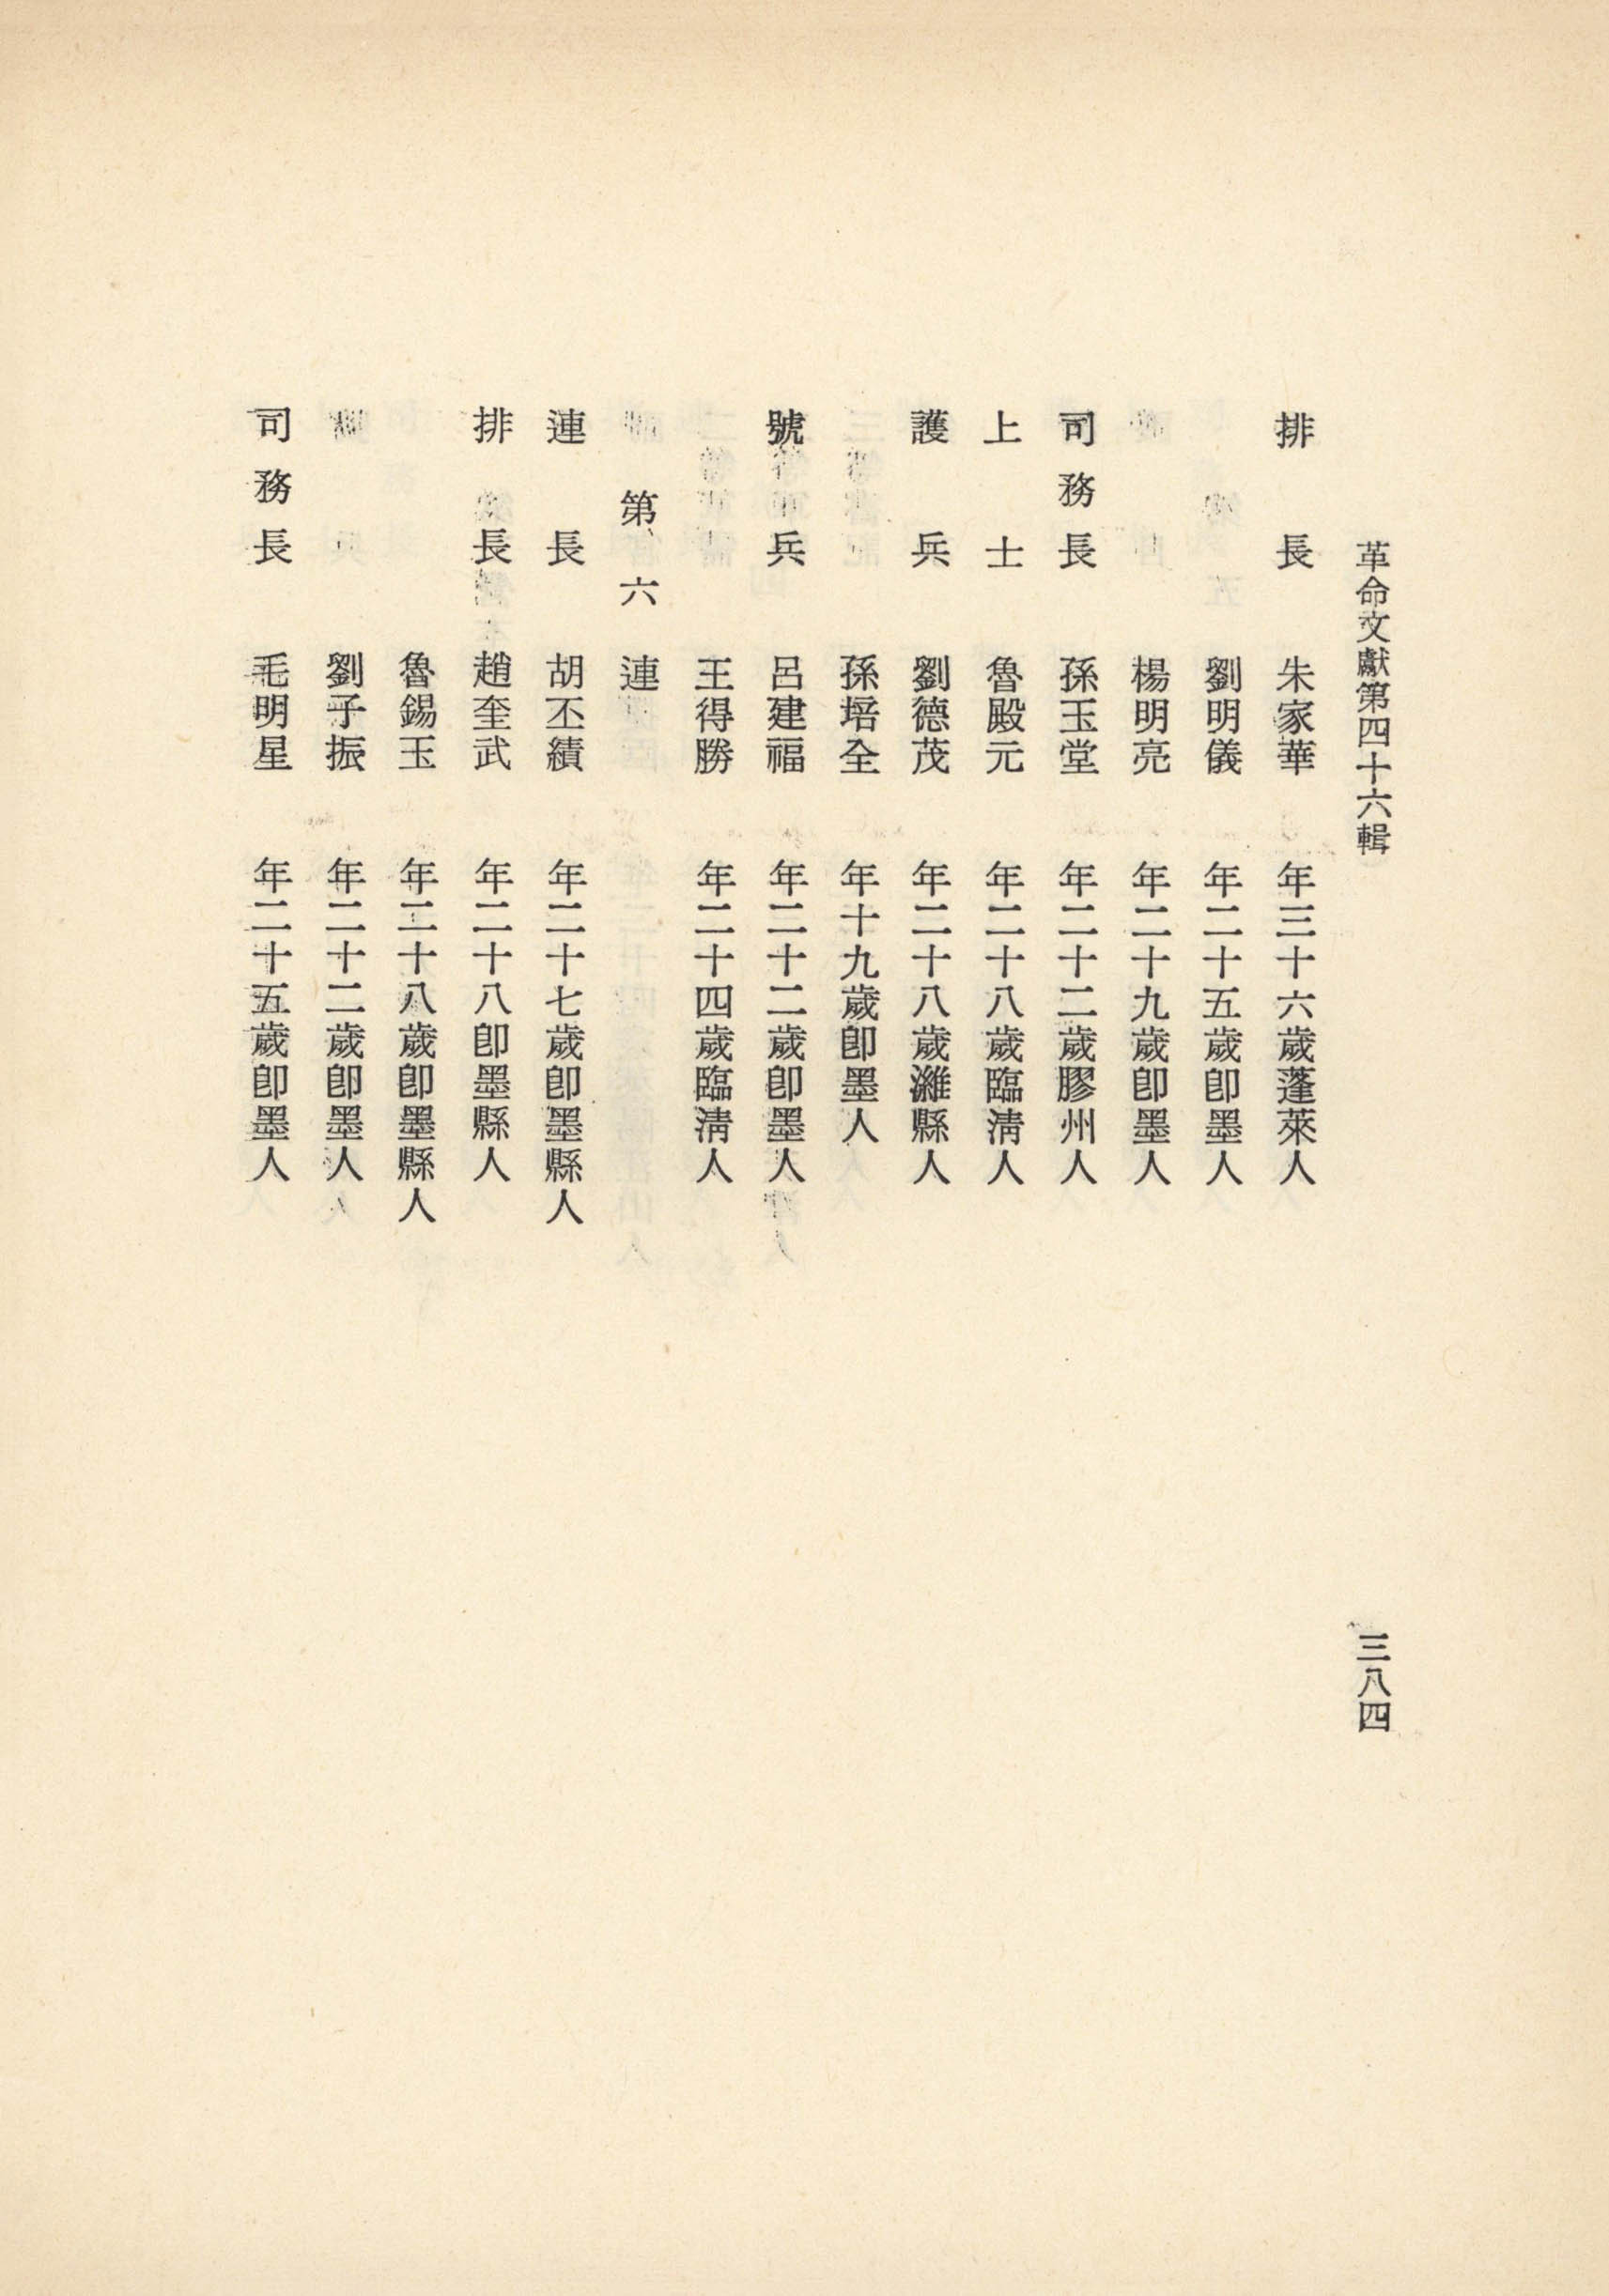 革命文獻第四十六輯
三八四
排長　朱家華　年三十六歲蓬萊人
劉明儀　年二十五歲卽墨人
楊明亮　年二十九歲卽墨人
司務長　孫玉堂　年二十二歲膠州人
上士　魯殿元　年二十八歲臨淸人
護兵　劉德茂　年二十八歲濰縣人
孫培全　年十九歲卽墨人
號兵　呂建福　年二十二歲卽墨人
王得勝　年二十四歲臨淸人
第六連
連長　胡丕績　年二十七歲卽墨縣人
排長　趙奎武　年二十八卽墨縣人
魯錫玉　年二十八歲卽墨縣人
劉子振　年二十二歲卽墨人
司務長　毛明星　年二十五歲卽墨人